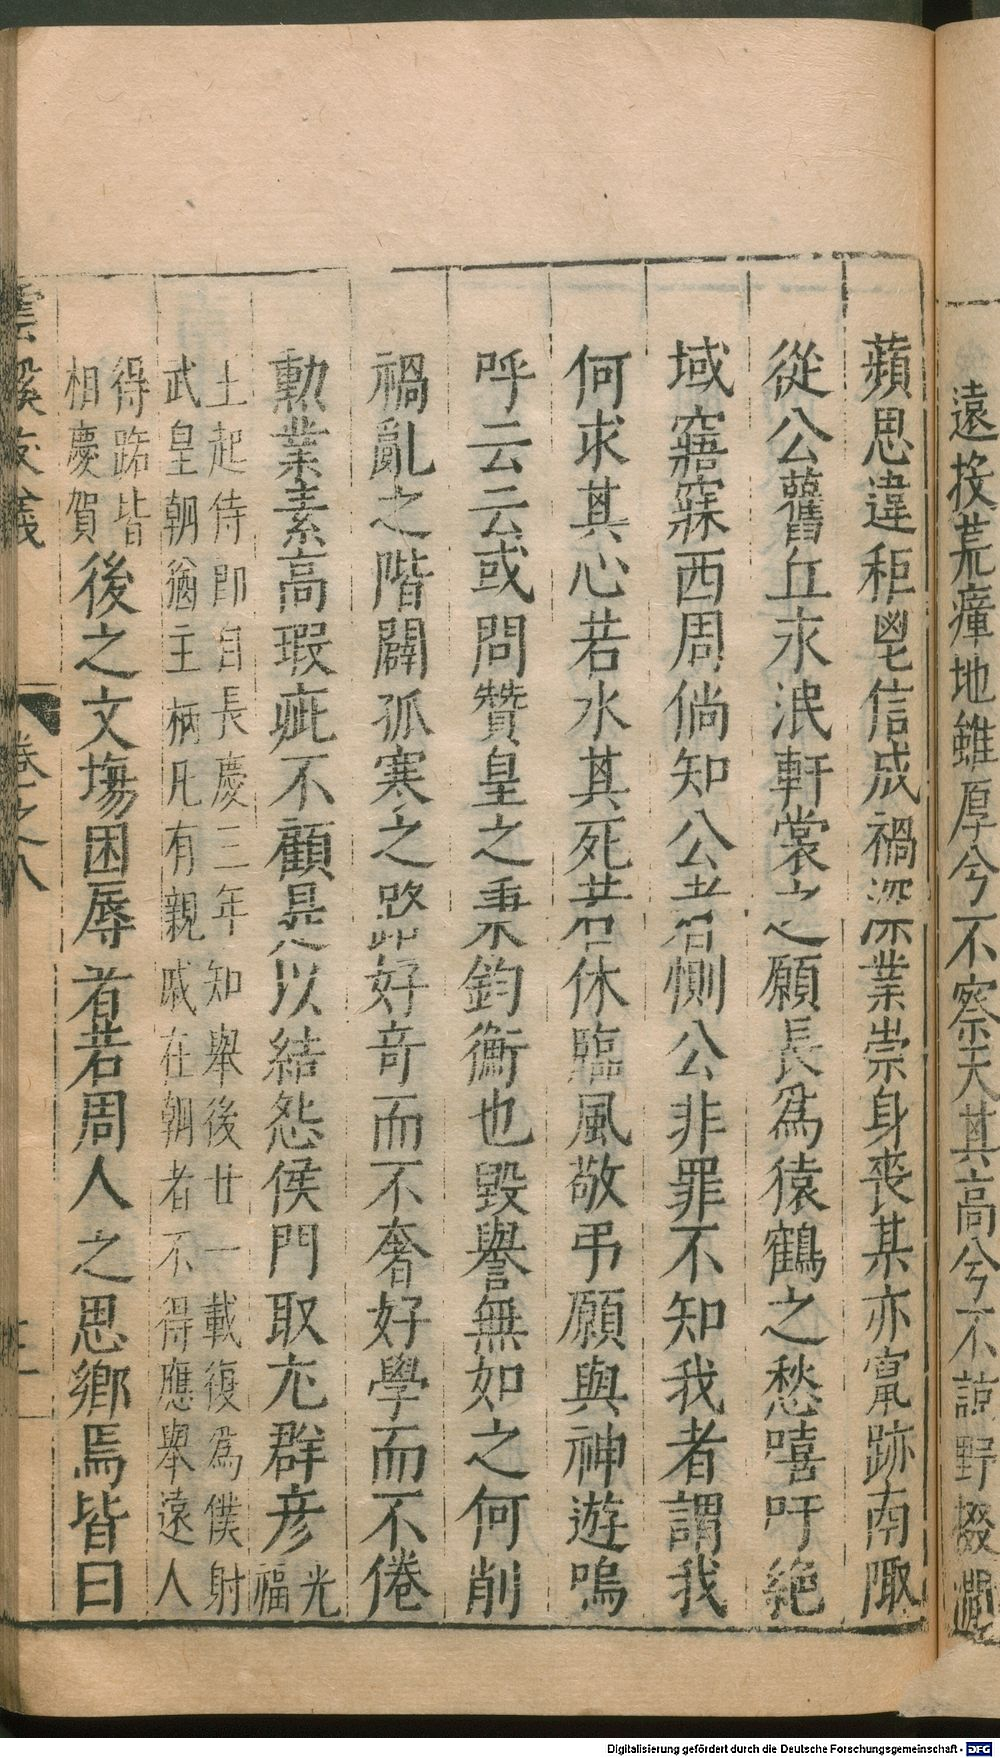 遠投荒瘴地雖厚兮不察天其高兮不諒野掇澗
蘋思違秬鬯信成禍深業崇身喪某亦竄跡南陬
從公舊丘永泯軒裳之願長爲猿鶴之愁嘻吁絶
域寤寐西周倘知公者惻公非罪不知我者謂我
何求其心若水其死若休臨風敬弔願與神遊嗚
呼云云或問贊皇之秉鈞衡也毀譽無如之何削
禍亂之階闢孤寒之路好奇而不奢好學而不倦
勳業素高瑕疵不顧是以結怨侯門取尤群彦光福
土起侍郎自長慶三年知舉後廿一載復爲僕射
武皇朝猶主柄凡有親戚在朝者不得應舉遠人
得路皆
相慶賀後之文場困辱者若周人之思鄉焉皆曰
雲溪友議 卷之八
Digitalisierung gefördert durch die Deutsche Forschungsgemeinschaft - DFG